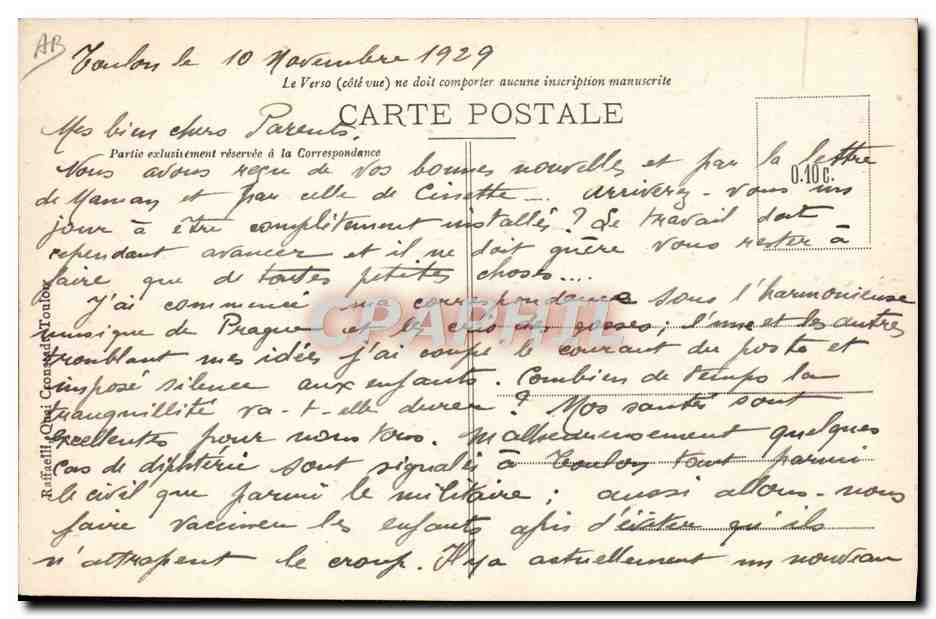 AB
Toulon le 10 Novembre 1929
Le Verso (côté vue) ne doit comporter aucune inscription manuscrite
CARTE POSTALE
Mes bien chers Parents,
Partie exclusivement réservée à la Correspondance
0.10 c.
Nous avons reçu de vos bonnes nouvelles et par la lettre
de Maman et par celle de Cinette... Arriverez-vous un
jour à être complètement installés? Le travail doit
cependant avancer et il ne doit guère vous rester à
faire que de toutes petites choses....
J'ai commencé ma correspondance sous l'harmonieuse
musique de Prague et les cris des gosses; l'une et les autres
troublant mes idées j'ai coupé le courant du poste et
imposé silence aux enfants. Combien de temps la
tranquillité va-t-elle durer? Nos santés sont
excellentes pour nous tous. Malheureusement quelques
cas de diphtérie sont signalés à Toulon tant parmi
le civil que parmi le militaire; aussi allons-nous
faire vacciner les enfants afin d'éviter qu'ils
n'attrapent le croup. Il y a actuellement un nouveau
Raffaelli, Quai Cronstadt, Toulon
CPAPHIL